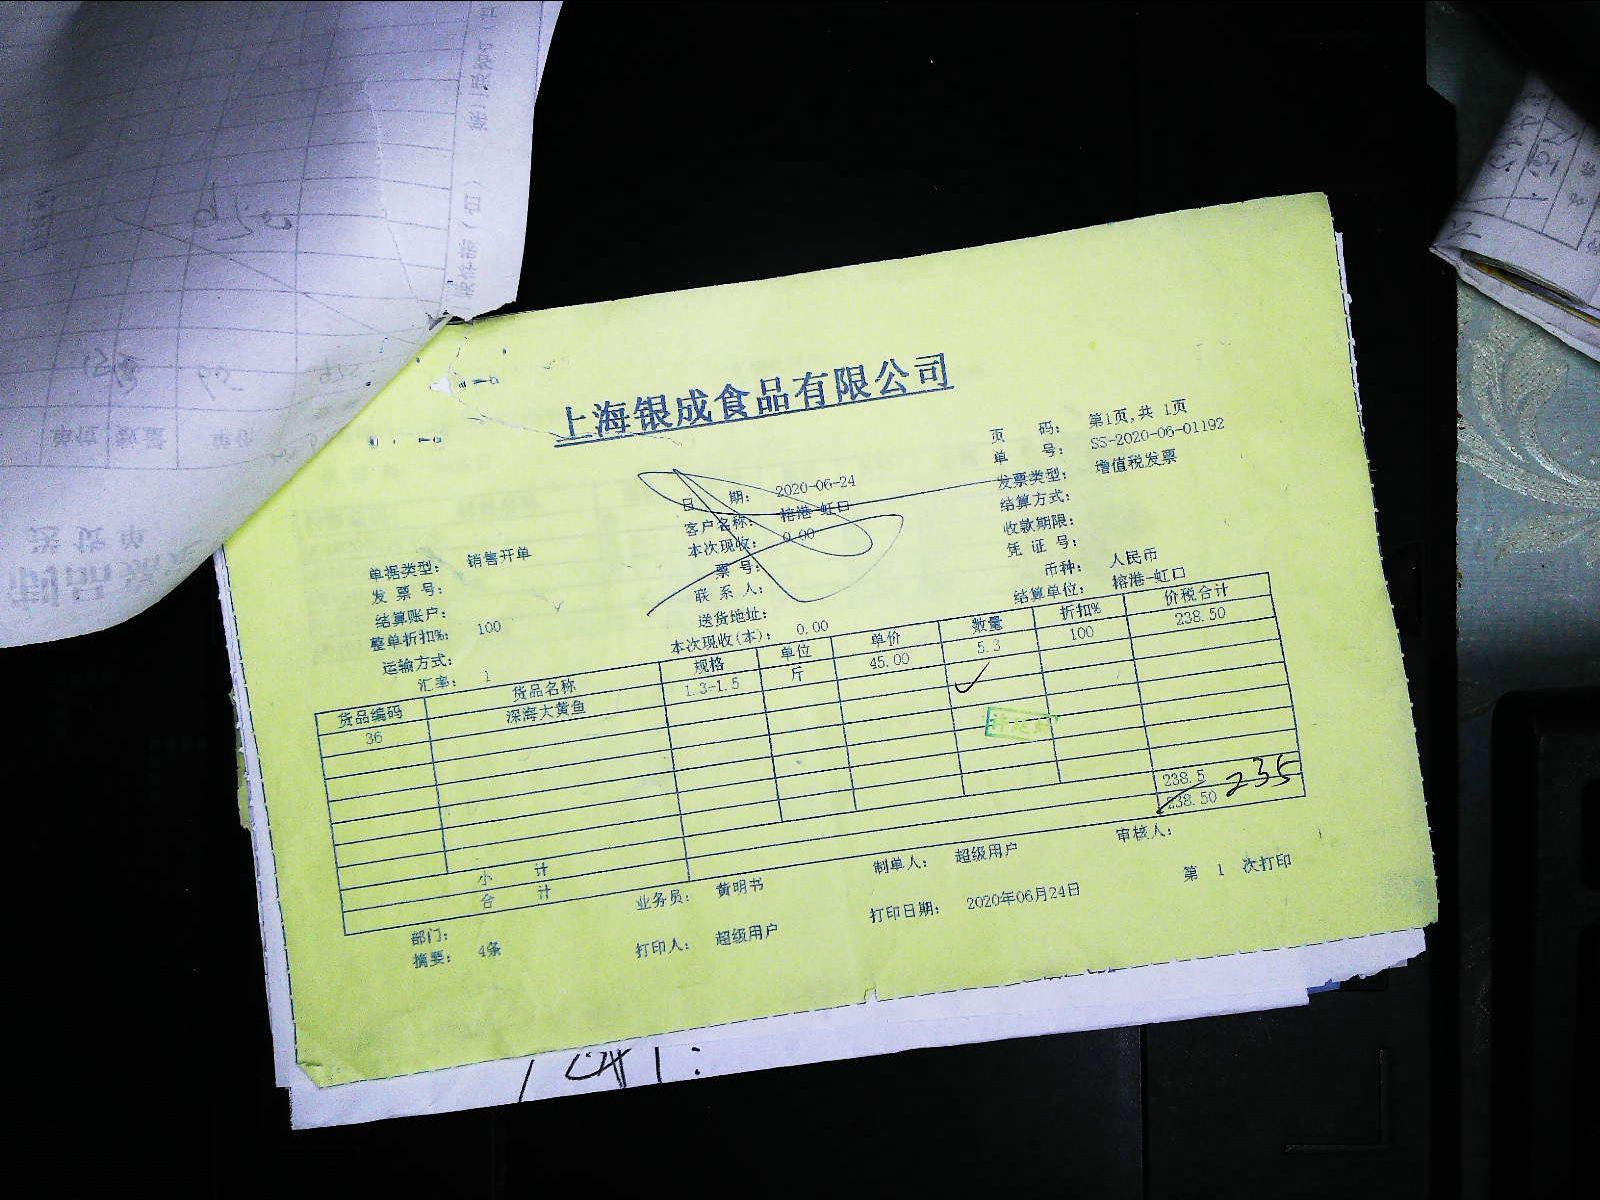 上海银成食品有限公司
页 码： 第1页,共 1页
日 期： 2020-06-24 单 号： SS-2020-06-01192
单据类型： 销售开单 客户名称： 榕港-虹口 发票类型： 增值税发票
发 票 号： 本次现收： 0.00 结算方式：
结算账户： 票 号： 收款期限：
整单折扣%： 100 联 系 人： 凭 证 号：
运输方式： 送货地址： 币种： 人民币
汇率： 1 本次现收(本)： 0.00 结算单位： 榕港-虹口
货品编码 货品名称 规格 单位 单价 数量 折扣% 价税合计
36 深海大黄鱼 1.3-1.5 斤 45.00 5.3 100 238.50
小 计 238.5
合 计 238.50 235
部门： 业务员： 黄明书 制单人： 超级用户 审核人：
摘要： 4条 打印人： 超级用户 打印日期： 2020年06月24日 第 1 次打印